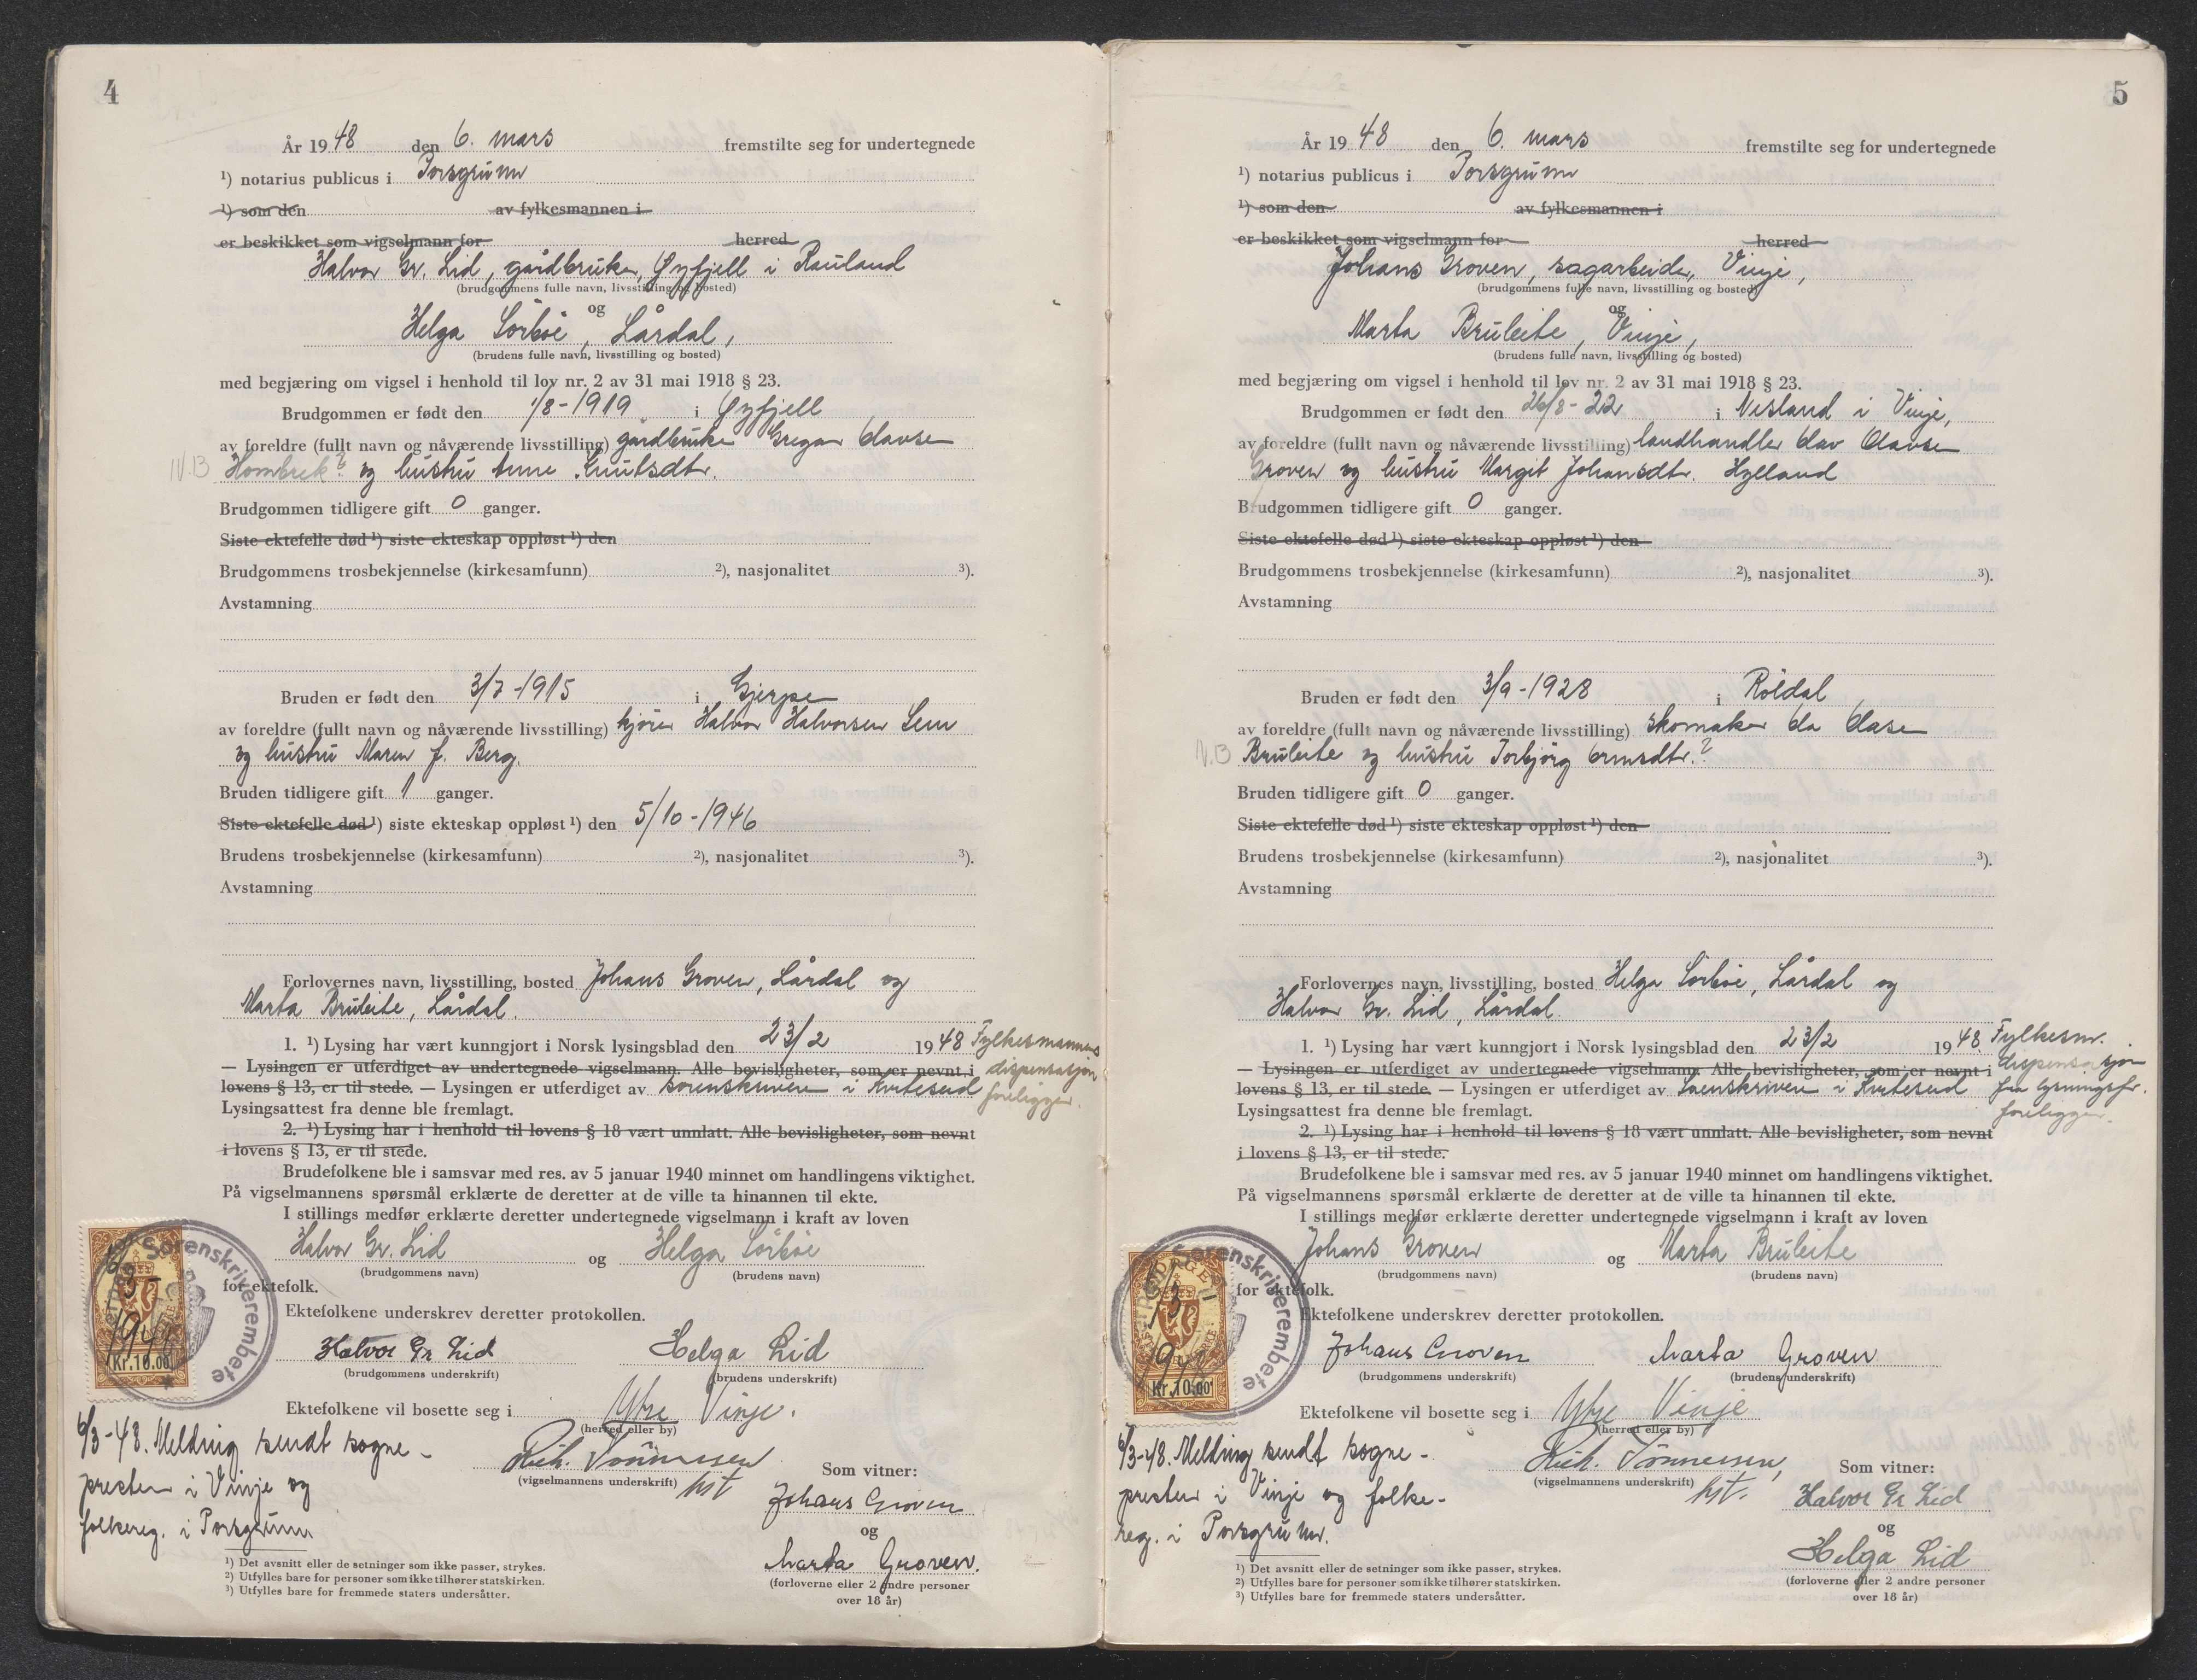 4
År 1948 den 6. mars fremstilte seg for undertegnede
¹) notarius publicus i Porsgrunn
¹) som den av fylkesmannen i
er beskikket som vigselmann for herred
Halvor Gr. Lid, gårdbruker, Øyfjell i Rauland
(brudgommens fulle navn, livsstilling og bosted)
og
Helga Sörbøe, Lårdal,
(brudens fulle navn, livsstilling og bosted)
med begjæring om vigsel i henhold til lov nr. 2 av 31 mai 1918 § 23.
Brudgommen er født den 1/8-1919 i Øyfjell
av foreldre (fullt navn og nåværende livsstilling) gårdbruker Gregar Olavsen
N.B Hombrek? og hustru Anne Knutsdtr.
Brudgommen tidligere gift 0 ganger.
Siste ektefelle død ¹) siste ekteskap oppløst ¹) den
Brudgommens trosbekjennelse (kirkesamfunn) ²), nasjonalitet ³).
Avstamning
Bruden er født den 3/7-1915 i Gjerpen
av foreldre (fullt navn og nåværende livsstilling) kjører Halvor Halvorsen Lem
og hustru Maren J. Berg.
Bruden tidligere gift 1 ganger.
Siste ektefelle død ¹) siste ekteskap oppløst ¹) den 5/10-1946
Brudens trosbekjennelse (kirkesamfunn) ²), nasjonalitet ³).
Avstamning
Forlovernes navn, livsstilling, bosted Johans Groven, Lårdal og
Marta Bruleite, Lårdal.
1. ¹) Lysing har vært kunngjort i Norsk lysingsblad den 23/2 1948 Fylkesmannens
— Lysingen er utferdiget av undertegnede vigselmann. Alle bevisligheter, som er nevnt i dispensasjon
lovens § 13, er til stede. — Lysingen er utferdiget av sorenskriveren i Kviteseid foreligger.
Lysingsattest fra denne ble fremlagt.
2. ¹) Lysing har i henhold til lovens § 18 vært unnlatt. Alle bevisligheter, som nevnt
i lovens § 13, er til stede.
Brudefolkene ble i samsvar med res. av 5 januar 1940 minnet om handlingens viktighet.
På vigselmannens spørsmål erklærte de deretter at de ville ta hinannen til ekte.
I stillings medfør erklærte deretter undertegnede vigselmann i kraft av loven
Halvor Gr. Lid og Helga Sörbøe
(brudgommens navn) (brudens navn)
for ektefolk.
Ektefolkene underskrev deretter protokollen.
Halvor Gr Lid Helga Lid
(brudgommens underskrift) (brudens underskrift)
Sorenskriverembete
6/3-1948
Kr.10.00
Ektefolkene vil bosette seg i Ytre Vinje.
(herred eller by)
6/3-48. Melding sendt sogne-
presten i Vinje og
folkereg. i Porsgrunn
Rich. Tönnessen
(vigselmannens underskrift) hst
Som vitner:
Johans Groven
og
Marta Groven.
(forloverne eller 2 andre personer
over 18 år)
¹) Det avsnitt eller de setninger som ikke passer, strykes.
²) Utfylles bare for personer som ikke tilhører statskirken.
³) Utfylles bare for fremmede staters undersåtter.
5
År 1948 den 6. mars fremstilte seg for undertegnede
¹) notarius publicus i Porsgrunn
¹) som den av fylkesmannen i
er beskikket som vigselmann for herred
Johans Groven, sagarbeider, Vinje,
(brudgommens fulle navn, livsstilling og bosted)
og
Marta Bruleite, Vinje,
(brudens fulle navn, livsstilling og bosted)
med begjæring om vigsel i henhold til lov nr. 2 av 31 mai 1918 § 23.
Brudgommen er født den 26/8-22 i Nesland i Vinje,
av foreldre (fullt navn og nåværende livsstilling) landhandler Olav Olavsen
Groven og hustru Margit Johansdtr. Hylland
Brudgommen tidligere gift 0 ganger.
Siste ektefelle død ¹) siste ekteskap oppløst ¹) den
Brudgommens trosbekjennelse (kirkesamfunn) ²), nasjonalitet ³).
Avstamning
Bruden er født den 3/9-1928 i Röldal
av foreldre (fullt navn og nåværende livsstilling) skomaker Ola Olasen
N.B Bruleite og hustru Torbjörg Ormsdtr.?
Bruden tidligere gift 0 ganger.
Siste ektefelle død ¹) siste ekteskap oppløst ¹) den
Brudens trosbekjennelse (kirkesamfunn) ²), nasjonalitet ³).
Avstamning
Forlovernes navn, livsstilling, bosted Helga Sörbøe, Lårdal og
Halvor Gr. Lid, Lårdal.
1. ¹) Lysing har vært kunngjort i Norsk lysingsblad den 23/2 1948. Fylkesm.
— Lysingen er utferdiget av undertegnede vigselmann. Alle bevisligheter, som er nevnt i dispensasjon
lovens § 13, er til stede. — Lysingen er utferdiget av Sorenskriveren i Kviteseid fra lysningsfr.
Lysingsattest fra denne ble fremlagt. foreligger.
2. ¹) Lysing har i henhold til lovens § 18 vært unnlatt. Alle bevisligheter, som nevnt
i lovens § 13, er til stede.
Brudefolkene ble i samsvar med res. av 5 januar 1940 minnet om handlingens viktighet.
På vigselmannens spørsmål erklærte de deretter at de ville ta hinannen til ekte.
I stillings medfør erklærte deretter undertegnede vigselmann i kraft av loven
Johans Groven og Marta Bruleite
(brudgommens navn) (brudens navn)
for ektefolk.
Ektefolkene underskrev deretter protokollen.
Johans Groven Marta Groven
(brudgommens underskrift) (brudens underskrift)
Sorenskriverembete
6/3 1948
Kr.10.00
Ektefolkene vil bosette seg i Ytre Vinje
(herred eller by)
6/3-48. Melding sendt sogne-
presten i Vinje og folke-
reg. i Porsgrunn.
Rich. Tönnessen,
(vigselmannens underskrift) hst.
Som vitner:
Halvor Gr Lid
og
Helga Lid
(forloverne eller 2 andre personer
over 18 år)
¹) Det avsnitt eller de setninger som ikke passer, strykes.
²) Utfylles bare for personer som ikke tilhører statskirken.
³) Utfylles bare for fremmede staters undersåtter.